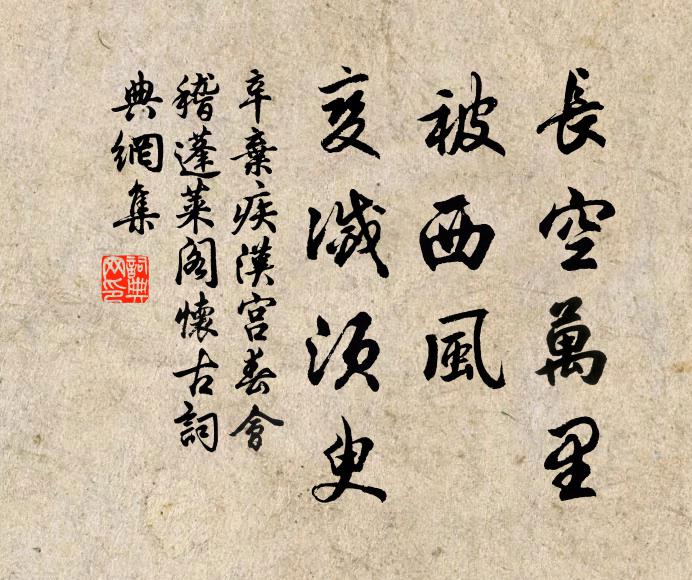 長空萬里
被西風
變滅須臾
辛棄疾漢宮春會
稽蓬萊閣懷古詞
典網集
詞典
网印